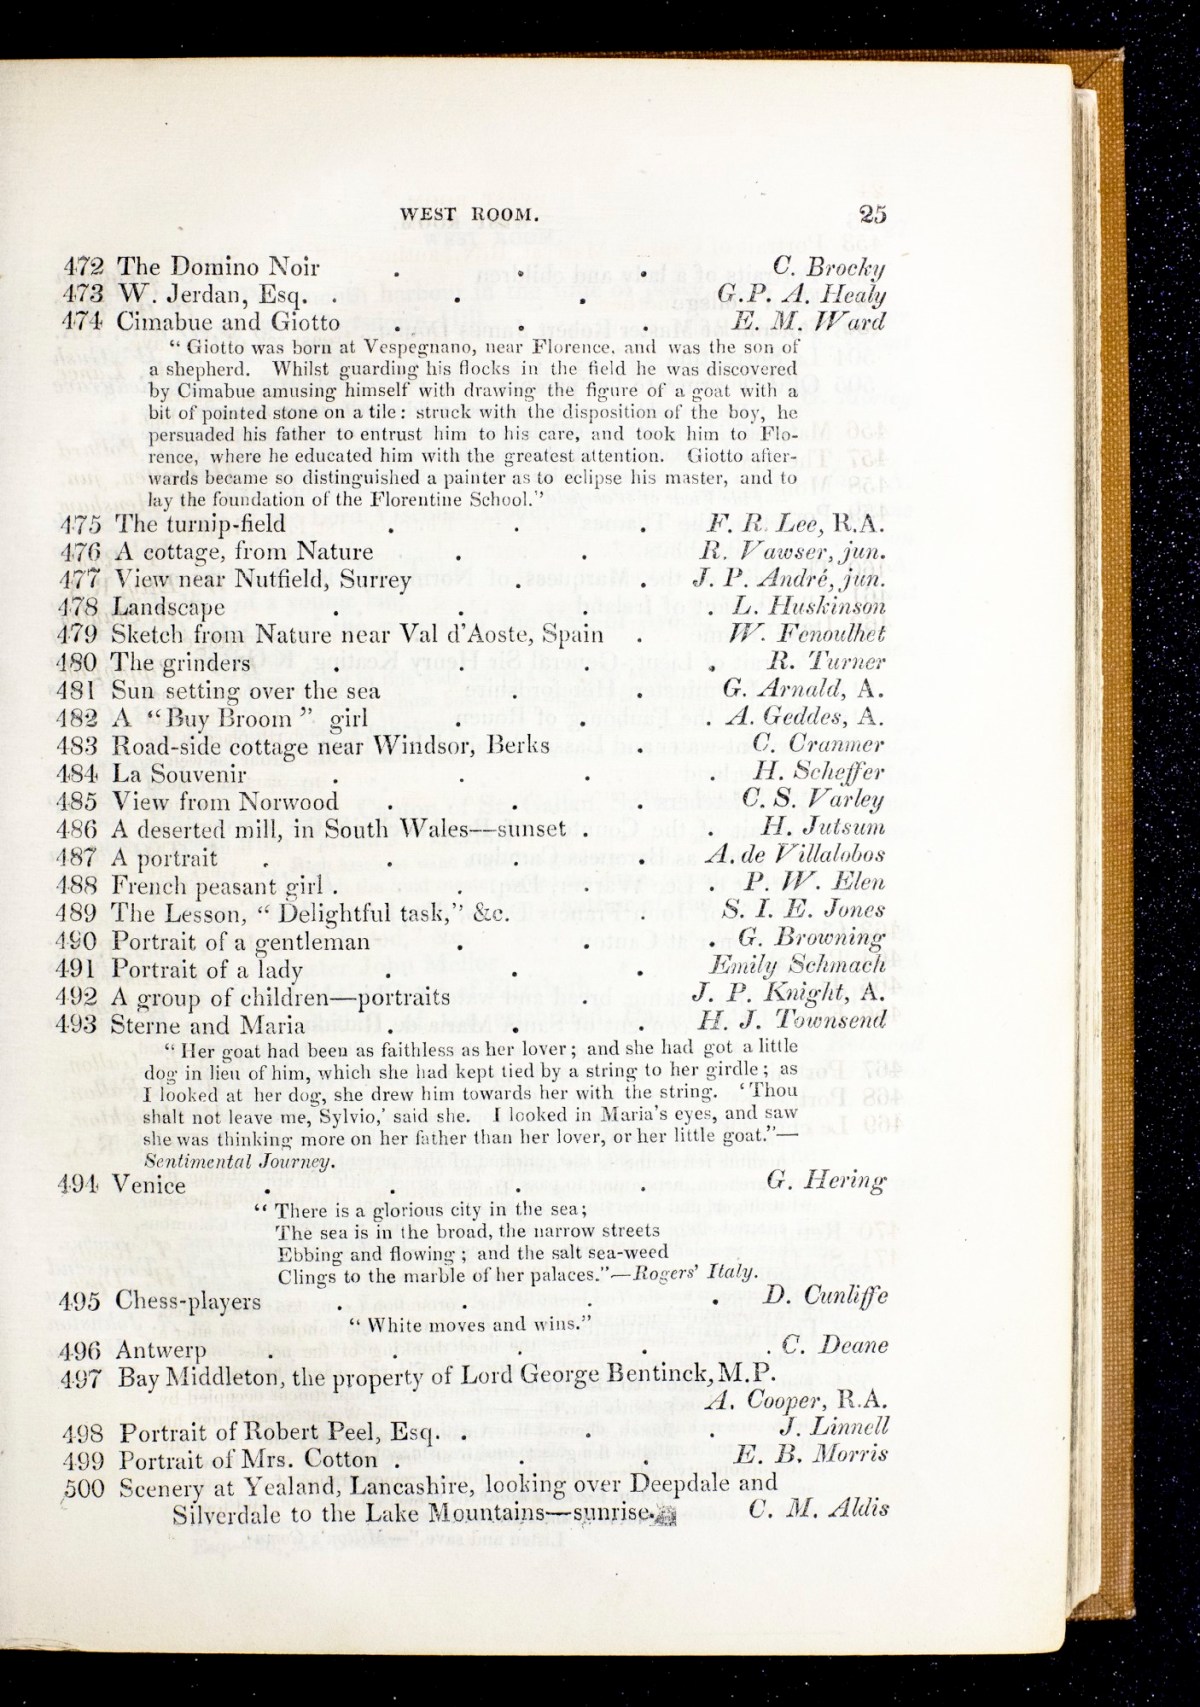 WEST ROOM. 25
472 The Domino Noir . . . C. Brocky
473 W. Jerdan, Esq. . . . G. P. A. Healy
474 Cimabue and Giotto . . . E. M. Ward
“ Giotto was born at Vespegnano, near Florence, and was the son of
a shepherd. Whilst guarding his flocks in the field he was discovered
by Cimabue amusing himself with drawing the figure of a goat with a
bit of pointed stone on a tile : struck with the disposition of the boy, he
persuaded his father to entrust him to his care, and took him to Flo-
rence, where he educated him with the greatest attention. Giotto after-
wards became so distinguished a painter as to eclipse his master, and to
lay the foundation of the Florentine School.”
475 The turnip-field . . . F. R. Lee, R.A.
476 A cottage, from Nature . . R. Vawser, jun.
477 View near Nutfield, Surrey . . J. P. André, jun.
478 Landscape . . . . L. Huskinson
479 Sketch from Nature near Val d’Aoste, Spain . W. Fenoulhet
480 The grinders . . . . R. Turner
481 Sun setting over the sea . . G. Arnald, A.
482 A “Buy Broom” girl . . . A. Geddes, A.
483 Road-side cottage near Windsor, Berks . C. Cranmer
484 La Souvenir . . . H. Scheffer
485 View from Norwood . . . C. S. Varley
486 A deserted mill, in South Wales—sunset . . H. Jutsum
487 A portrait . . . . A. de Villalobos
488 French peasant girl . . . . P. W. Elen
489 The Lesson, “ Delightful task,” &c. . . S. I. E. Jones
490 Portrait of a gentleman . . . G. Browning
491 Portrait of a lady . . . Emily Schmach
492 A group of children—portraits . J. P. Knight, A.
493 Sterne and Maria . . . H. J. Townsend
“ Her goat had been as faithless as her lover ; and she had got a little
dog in lieu of him, which she had kept tied by a string to her girdle ; as
I looked at her dog, she drew him towards her with the string. ‘ Thou
shalt not leave me, Sylvio,’ said she. I looked in Maria’s eyes, and saw
she was thinking more on her father than her lover, or her little goat.”—
Sentimental Journey.
494 Venice . . . . G. Hering
“ There is a glorious city in the sea ;
The sea is in the broad, the narrow streets
Ebbing and flowing ; and the salt sea-weed
Clings to the marble of her palaces.”—Rogers’ Italy.
495 Chess-players . . . . D. Cunliffe
“ White moves and wins.”
496 Antwerp . . . . . C. Deane
497 Bay Middleton, the property of Lord George Bentinck, M.P.
A. Cooper, R.A.
498 Portrait of Robert Peel, Esq. . . . J. Linnell
499 Portrait of Mrs. Cotton . . . E. B. Morris
500 Scenery at Yealand, Lancashire, looking over Deepdale and
Silverdale to the Lake Mountains—sunrise. C. M. Aldis